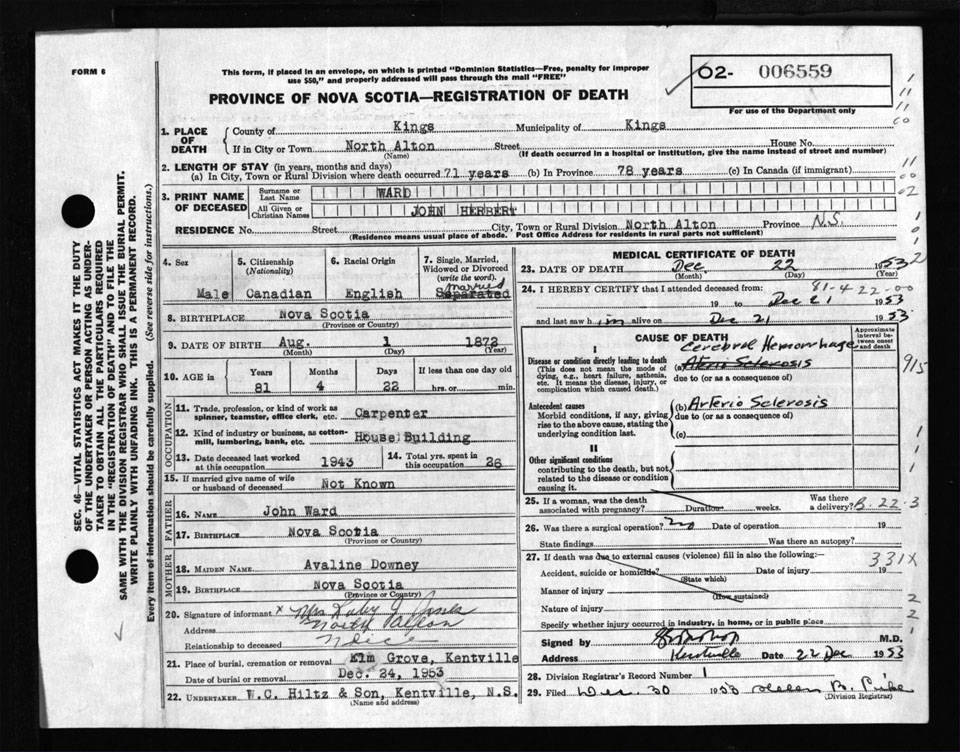 FORM 6
This form, if placed in an envelope, on which is printed "Dominion Statistics—Free, penalty for improper
use $50," and properly addressed will pass through the mail "FREE"
PROVINCE OF NOVA SCOTIA—REGISTRATION OF DEATH
02- 006559
For use of the Department only
1. PLACE OF DEATH
County of Kings Municipality of Kings
If in City or Town North Alton Street House No.
(Name) (If death occurred in a hospital or institution, give the name instead of street and number)
2. LENGTH OF STAY (in years, months and days)
(a) In City, Town or Rural Division where death occurred 71 years (b) In Province 78 years (c) In Canada (if immigrant)
3. PRINT NAME OF DECEASED
Surname or Last Name WARD
All Given or Christian Names JOHN HERBERT
RESIDENCE No. Street City, Town or Rural Division North Alton Province N.S.
(Residence means usual place of abode. Post Office Address for residents in rural parts not sufficient)
4. Sex
Male
5. Citizenship
(Nationality)
Canadian
6. Racial Origin
English
7. Single, Married,
Widowed or Divorced
(write the word).
Married
Separated
8. BIRTHPLACE Nova Scotia
(Province or Country)
9. DATE OF BIRTH Aug. 1 1872
(Month) (Day) (Year)
10. AGE in
Years Months Days If less than one day
81 4 22 hrs. or min.
OCCUPATION
11. Trade, profession, or kind of work as
spinner, teamster, office clerk, etc. Carpenter
12. Kind of industry or business, as cotton-
mill, lumbering, bank, etc. House Building
13. Date deceased last worked
at this occupation 1943
14. Total yrs. spent in
this occupation 26
15. If married give name of wife
or husband of deceased Not Known
FATHER
16. NAME John Ward
17. BIRTHPLACE Nova Scotia
(Province or Country)
MOTHER
18. MAIDEN NAME Avaline Downey
19. BIRTHPLACE Nova Scotia
(Province or Country)
20. Signature of informant x Mrs
Address North Alton
Relationship to deceased Niece
21. Place of burial, cremation or removal Elm Grove, Kentville
Date of burial or removal Dec. 24, 1953
22. UNDERTAKER W.C. Hiltz & Son, Kentville, N.S.
(Name and address)
MEDICAL CERTIFICATE OF DEATH
23. DATE OF DEATH Dec 22 1953
(Month) (Day) (Year)
81-4 22-00
24. I HEREBY CERTIFY that I attended deceased from:
19 to Dec 21 1953
and last saw him alive on Dec 21 1953
CAUSE OF DEATH
Approximate
interval be-
tween onset
and death
I
Cerebral Hemorrhage
Disease or condition directly leading to death (a) Aterio Sclerosis
(This does not mean the mode of
dying, e.g., heart failure, asthenia,
etc. It means the disease, injury, or
complication which caused death.)
due to (or as a consequence of)
915
Antecedent causes (b) Arterio Sclerosis
Morbid conditions, if any, giving
rise to the above cause, stating the
underlying condition last.
due to (or as a consequence of)
(c)
II
Other significant conditions
contributing to the death, but not
related to the disease or condition
causing it.
25. If a woman, was the death
associated with pregnancy? Duration weeks.
Was there
a delivery? B-22-3
26. Was there a surgical operation? no Date of operation 19
State findings Was there an autopsy?
27. If death was due to external causes (violence) fill in also the following:—
331X
Accident, suicide or homicide? Date of injury 19
(State which)
Manner of injury
(How sustained)
Nature of injury
Specify whether injury occurred in industry, in home, or in public place
Signed by M.D.
Address Kentville Date 22 Dec 1953
28. Division Registrar's Record Number 1
29. Filed Dec. 30 1953 Helen B.
(Division Registrar)
SEC. 46—VITAL STATISTICS ACT MAKES IT THE DUTY
OF THE UNDERTAKER OR PERSON ACTING AS UNDER-
TAKER TO OBTAIN ALL THE PARTICULARS REQUIRED
IN THE "REGISTRATION OF DEATH" AND TO FILE THE
SAME WITH THE DIVISION REGISTRAR WHO SHALL ISSUE THE BURIAL PERMIT.
WRITE PLAINLY WITH UNFADING INK. THIS IS A PERMANENT RECORD.
Every item of information should be carefully supplied. (See reverse side for instructions.)